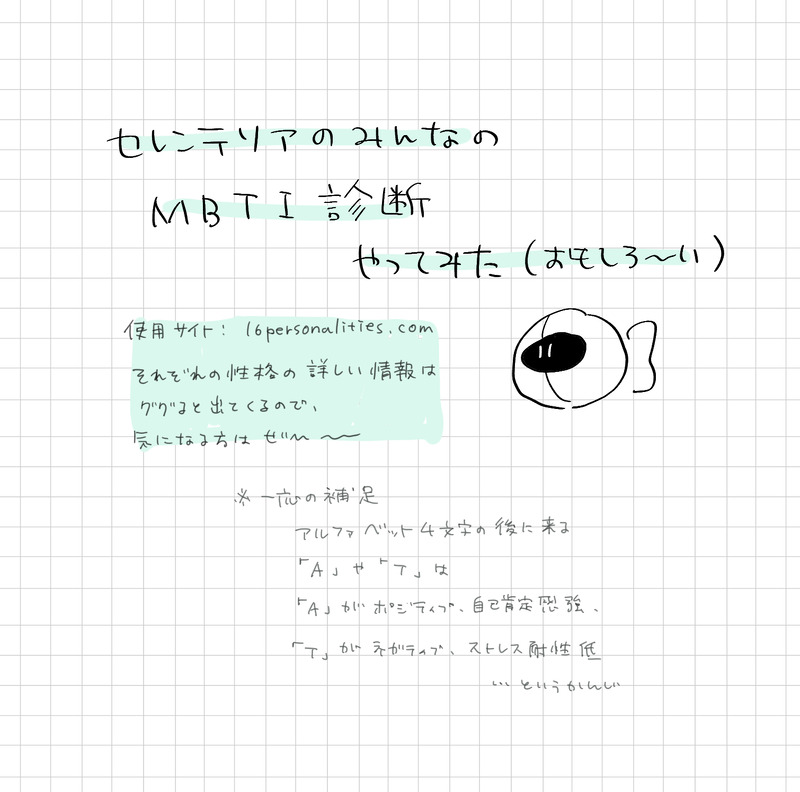 セレンテリアのみんなの
MBTI診断
やってみた(おもしろ〜い)
使用サイト: 16personalities.com
それぞれの性格の詳しい情報は
ググると出てくるので、
気になる方はぜひ〜
※一応の補足
アルファベット4文字の後に来る
「A」や「T」は
「A」がポジティブ、自己肯定感強、
「T」がネガティブ、ストレス耐性低
…というかんじ